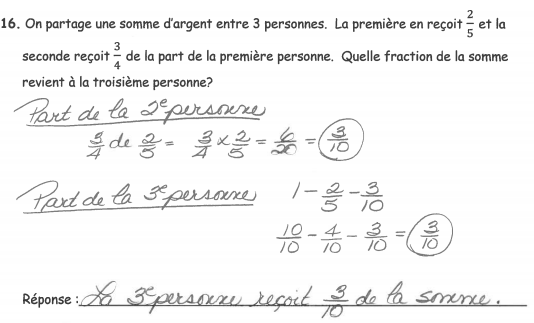 16. On partage une somme d'argent entre 3 personnes. La première en reçoit 2/5 et la
seconde reçoit 3/4 de la part de la première personne. Quelle fraction de la somme
revient à la troisième personne?
Part de la 2e personne
3/4 de 2/5 = 3/4 x 2/5 = 6/20 = 3/10
Part de la 3e personne 1 - 2/5 - 3/10
10/10 - 4/10 - 3/10 = 3/10
Réponse : La 3e personne reçoit 3/10 de la somme.